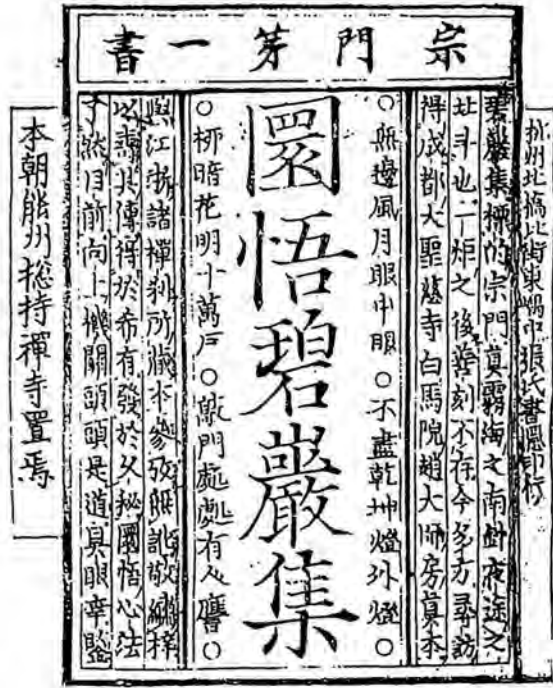 宗門苐一書
杭州北橋北街東嵎中張氏書隱印行
碧巖集標的宗門真霧海之南針夜途之
北斗也一炬之後舊刻不存今多方尋訪
得成都大聖慈寺白馬院趙大師房真本
○無邊風月眼中眼○不盡乾坤燈外燈○
圜悟碧巖集
○柳暗花明十萬戶○敲門處處有人譍○
與江浙諸禪刹所藏本參攷無訛敬繡梓
以壽其傳得於希有發於久秘圜悟心法
了然目前向上機關頭頭是道具眼幸鑒
本朝能州総持禪寺置焉